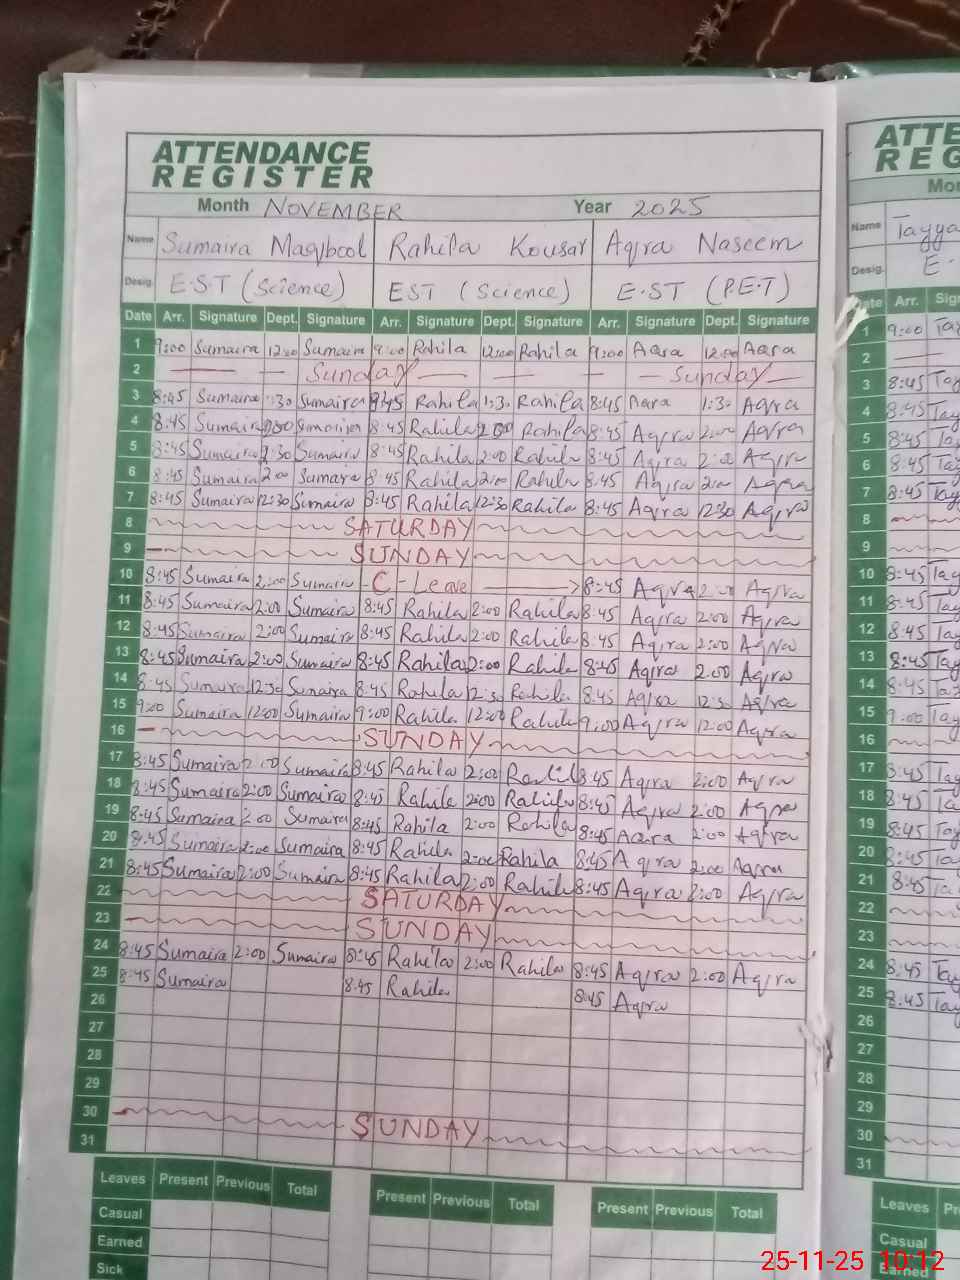 ATTENDANCE
REGISTER
Month NOVEMBER Year 2025
Name Sumaira Maqbool Rahila Kousar Aqra Naseem
Desig. E.S.T (Science) EST (Science) E.ST (P.E.T)
Date Arr. Signature Dept. Signature Arr. Signature Dept. Signature Arr. Signature Dept. Signature
1 9:00 Sumaira 12:00 Sumaira 9:00 Rahila 12:00 Rahila 9:00 Aqra 12:00 Aqra
2 Sunday Sunday
3 8:45 Sumaira 1:30 Sumaira 8:45 Rahila 1:30 Rahila 8:45 Aqra 1:30 Aqra
4 8:45 Sumaira 2:00 Sumaira 8:45 Rahila 2:00 Rahila 8:45 Aqra 2:00 Aqra
5 8:45 Sumaira Sumaira 8:45 Rahila 2:00 Rahila 8:45 Aqra 2:00 Aqra
6 8:45 Sumaira 2:00 Sumaira 8:45 Rahila 2:00 Rahila 8:45 Aqra 2:00 Aqra
7 8:45 Sumaira 12:30 Sumaira 8:45 Rahila 12:30 Rahila 8:45 Aqra 12:30 Aqra
8 SATURDAY
9 SUNDAY
10 8:45 Sumaira 2:00 Sumaira C-Leave 8:45 Aqra 2:00 Aqra
11 8:45 Sumaira 2:00 Sumaira 8:45 Rahila 2:00 Rahila 8:45 Aqra 2:00 Aqra
12 8:45 Sumaira 2:00 Sumaira 8:45 Rahila 2:00 Rahila 8:45 Aqra 2:00 Aqra
13 8:45 Sumaira 2:00 Sumaira 8:45 Rahila 2:00 Rahila 8:45 Aqra 2:00 Aqra
14 8:45 Sumaira 12:30 Sumaira 8:45 Rahila 12:30 Rahila 8:45 Aqra 12:30 Aqra
15 9:00 Sumaira 12:00 Sumaira 9:00 Rahila 12:00 Rahila 9:00 Aqra 12:00 Aqra
16 SUNDAY
17 8:45 Sumaira 2:00 Sumaira 8:45 Rahila 2:00 Rahila 8:45 Aqra 2:00 Aqra
18 8:45 Sumaira 2:00 Sumaira 8:45 Rahila 2:00 Rahila 8:45 Aqra 2:00 Aqra
19 8:45 Sumaira 2:00 Sumaira 8:45 Rahila 2:00 Rahila 8:45 Aqra 2:00 Aqra
20 8:45 Sumaira 2:00 Sumaira 8:45 Rahila 2:00 Rahila 8:45 Aqra 2:00 Aqra
21 8:45 Sumaira 2:00 Sumaira 8:45 Rahila 2:00 Rahila 8:45 Aqra 2:00 Aqra
22 SATURDAY
23 SUNDAY
24 8:45 Sumaira 2:00 Sumaira 8:45 Rahila 2:00 Rahila 8:45 Aqra 2:00 Aqra
25 8:45 Sumaira 8:45 Rahila 8:45 Aqra
26
27
28
29
30 SUNDAY
31
Leaves Present Previous Total Present Previous Total Present Previous Total
Casual
Earned
Sick
ATTE
REG
Mo
Name Tayya
Desig. E.
Date Arr. Sig
1 9:00 Tay
2
3 8:45 Tay
4 8:45 Tay
5 8:45 Ta
6 8:45 Tay
7 8:45 Tay
8
9
10 8:45 Tay
11 8:45 Tay
12 8:45 Tay
13 8:45 Tay
14 8:45 Ta
15 9:00 Tay
16
17 8:45 Tay
18 8:45 Ta
19 8:45 Tay
20 8:45 Tay
21 8:45 Ta
22
23
24 8:45 Tay
25 8:45 Tay
26
27
28
29
30
31
Leaves Pr
Casual
Earned
25-11-25 10:12